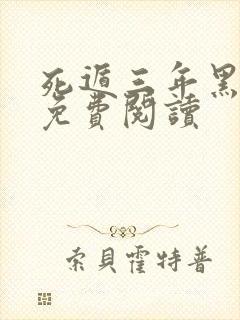 死遁三年黑
免費閱讀
索貝霍特普